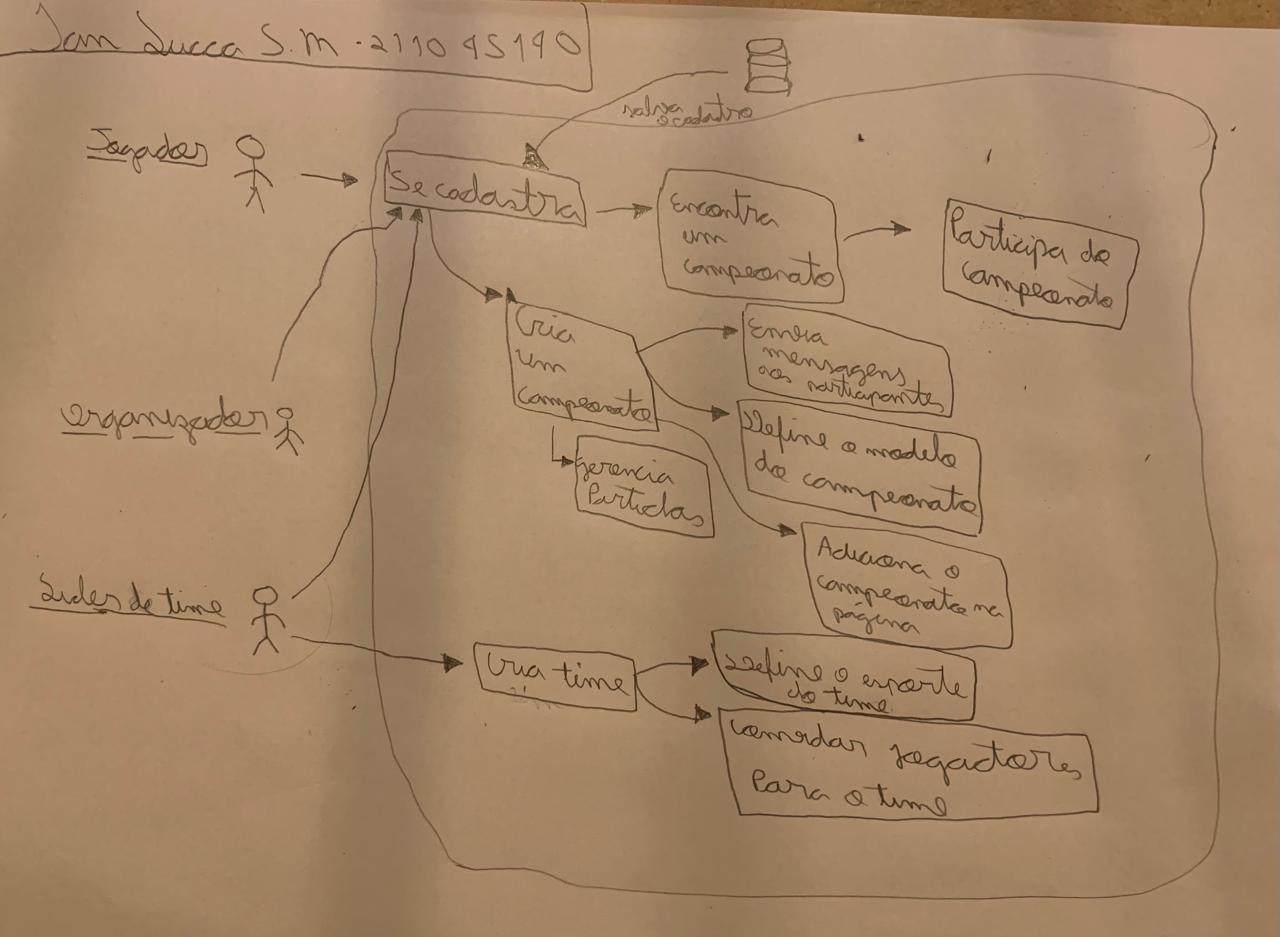 Ian Lucca S.M - 211045140
salva
o cadastro
Jogador
Se cadastra
Encontra
um
campeonato
Participa do
campeonato
Cria
um
campeonato
Envia
mensagens
aos participantes
Organizador
Define o modelo
do campeonato
Gerencia
Partidas
Adiciona o
campeonato na
página
Lider de time
Cria time
Define o esporte
do time
Convidar jogadores
Para o time